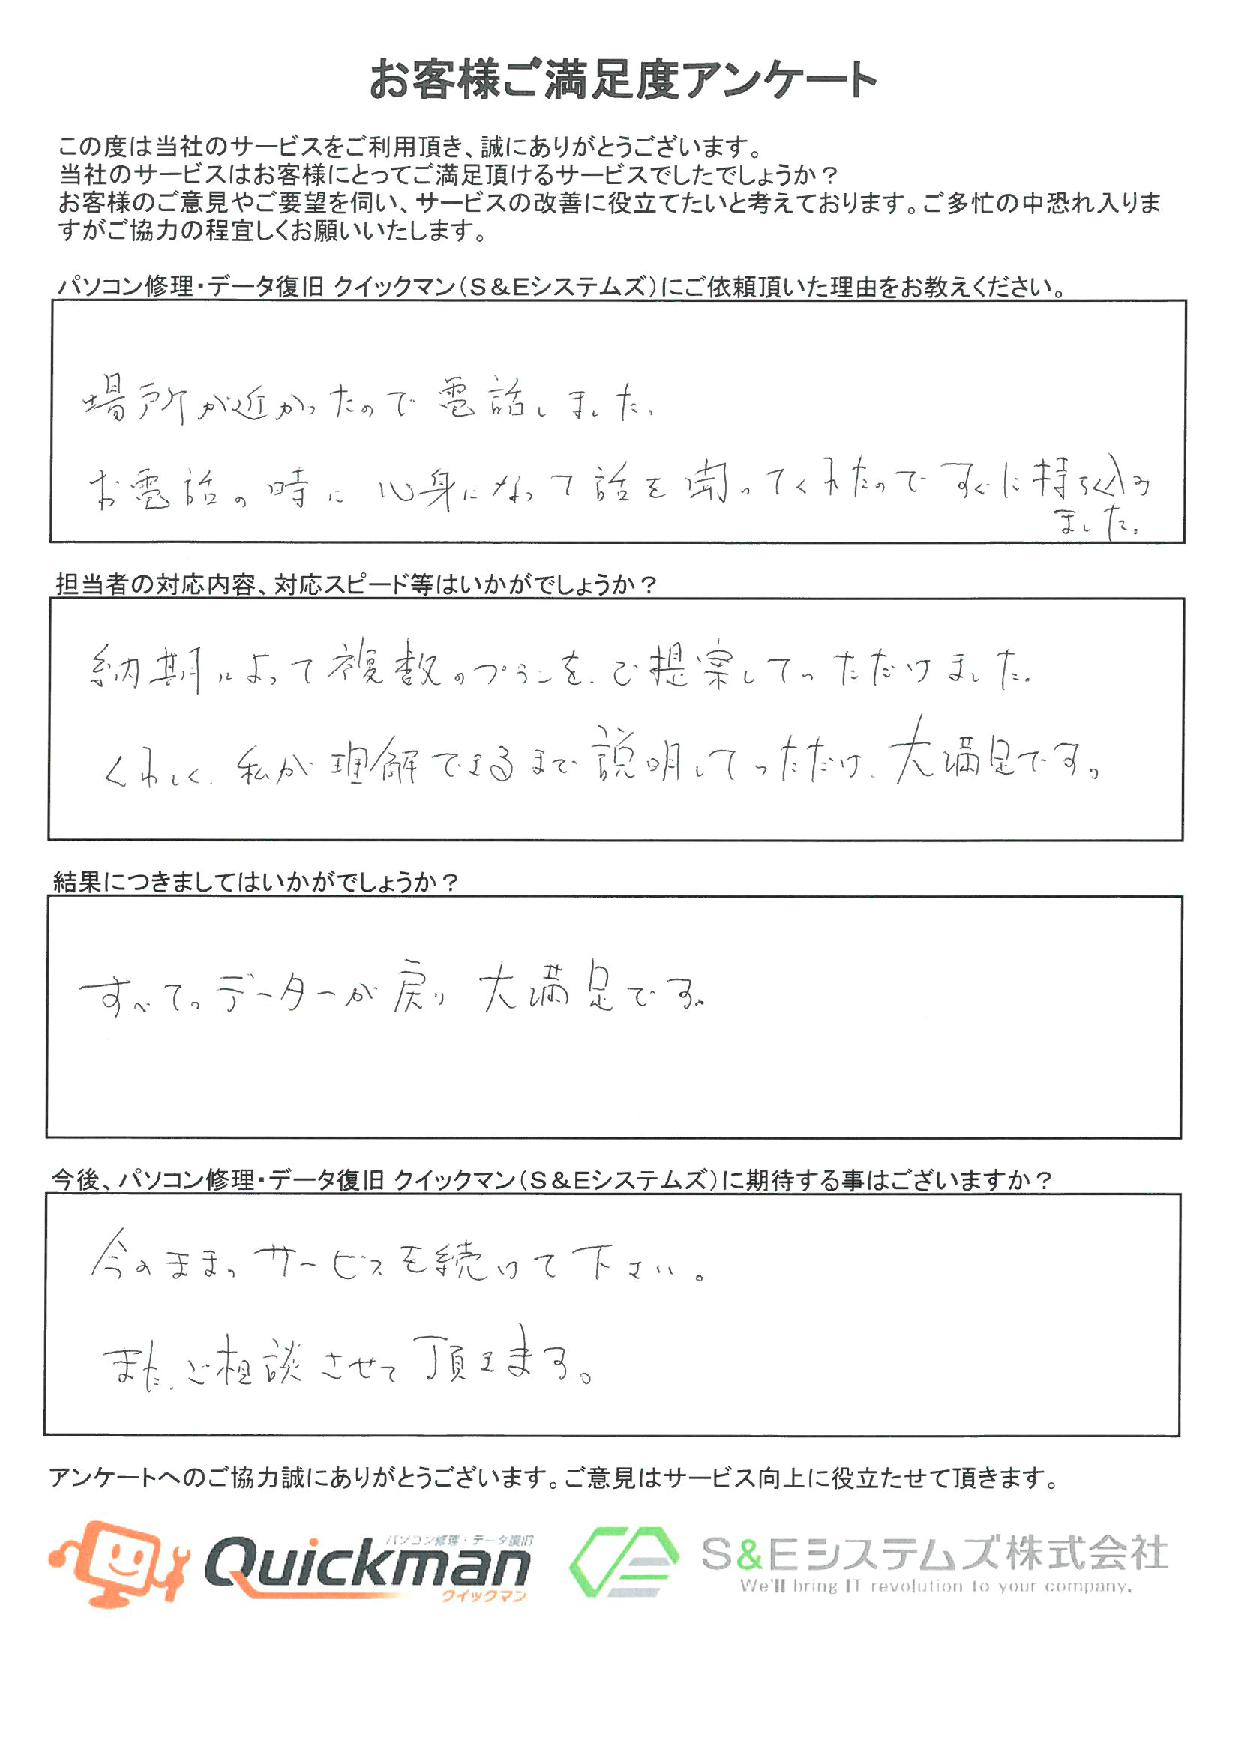 お客様ご満足度アンケート
この度は当社のサービスをご利用頂き、誠にありがとうございます。
当社のサービスはお客様にとってご満足頂けるサービスでしたでしょうか？
お客様のご意見やご要望を伺い、サービスの改善に役立てたいと考えております。ご多忙の中恐れ入りま
すがご協力の程宜しくお願いいたします。
パソコン修理・データ復旧 クイックマン（S＆Eシステムズ）にご依頼頂いた理由をお教えください。
場所が近かったので電話しました。
お電話の時に心身になって話を聞いてくれたのですぐに持ち込み
ました。
担当者の対応内容、対応スピード等はいかがでしょうか？
納期によって複数のプランをご提案していただけました。
くわしく、私が理解できるまで説明していただけ、大満足です。
結果につきましてはいかがでしょうか？
すべてのデーターが戻り大満足です。
今後、パソコン修理・データ復旧 クイックマン（S＆Eシステムズ）に期待する事はございますか？
今のままのサービスを続けて下さい。
また、ご相談させて頂きます。
アンケートへのご協力誠にありがとうございます。ご意見はサービス向上に役立たせて頂きます。
パソコン修理・データ復旧
Quickman
クイックマン
S&Eシステムズ株式会社
We'll bring IT revolution to your company.